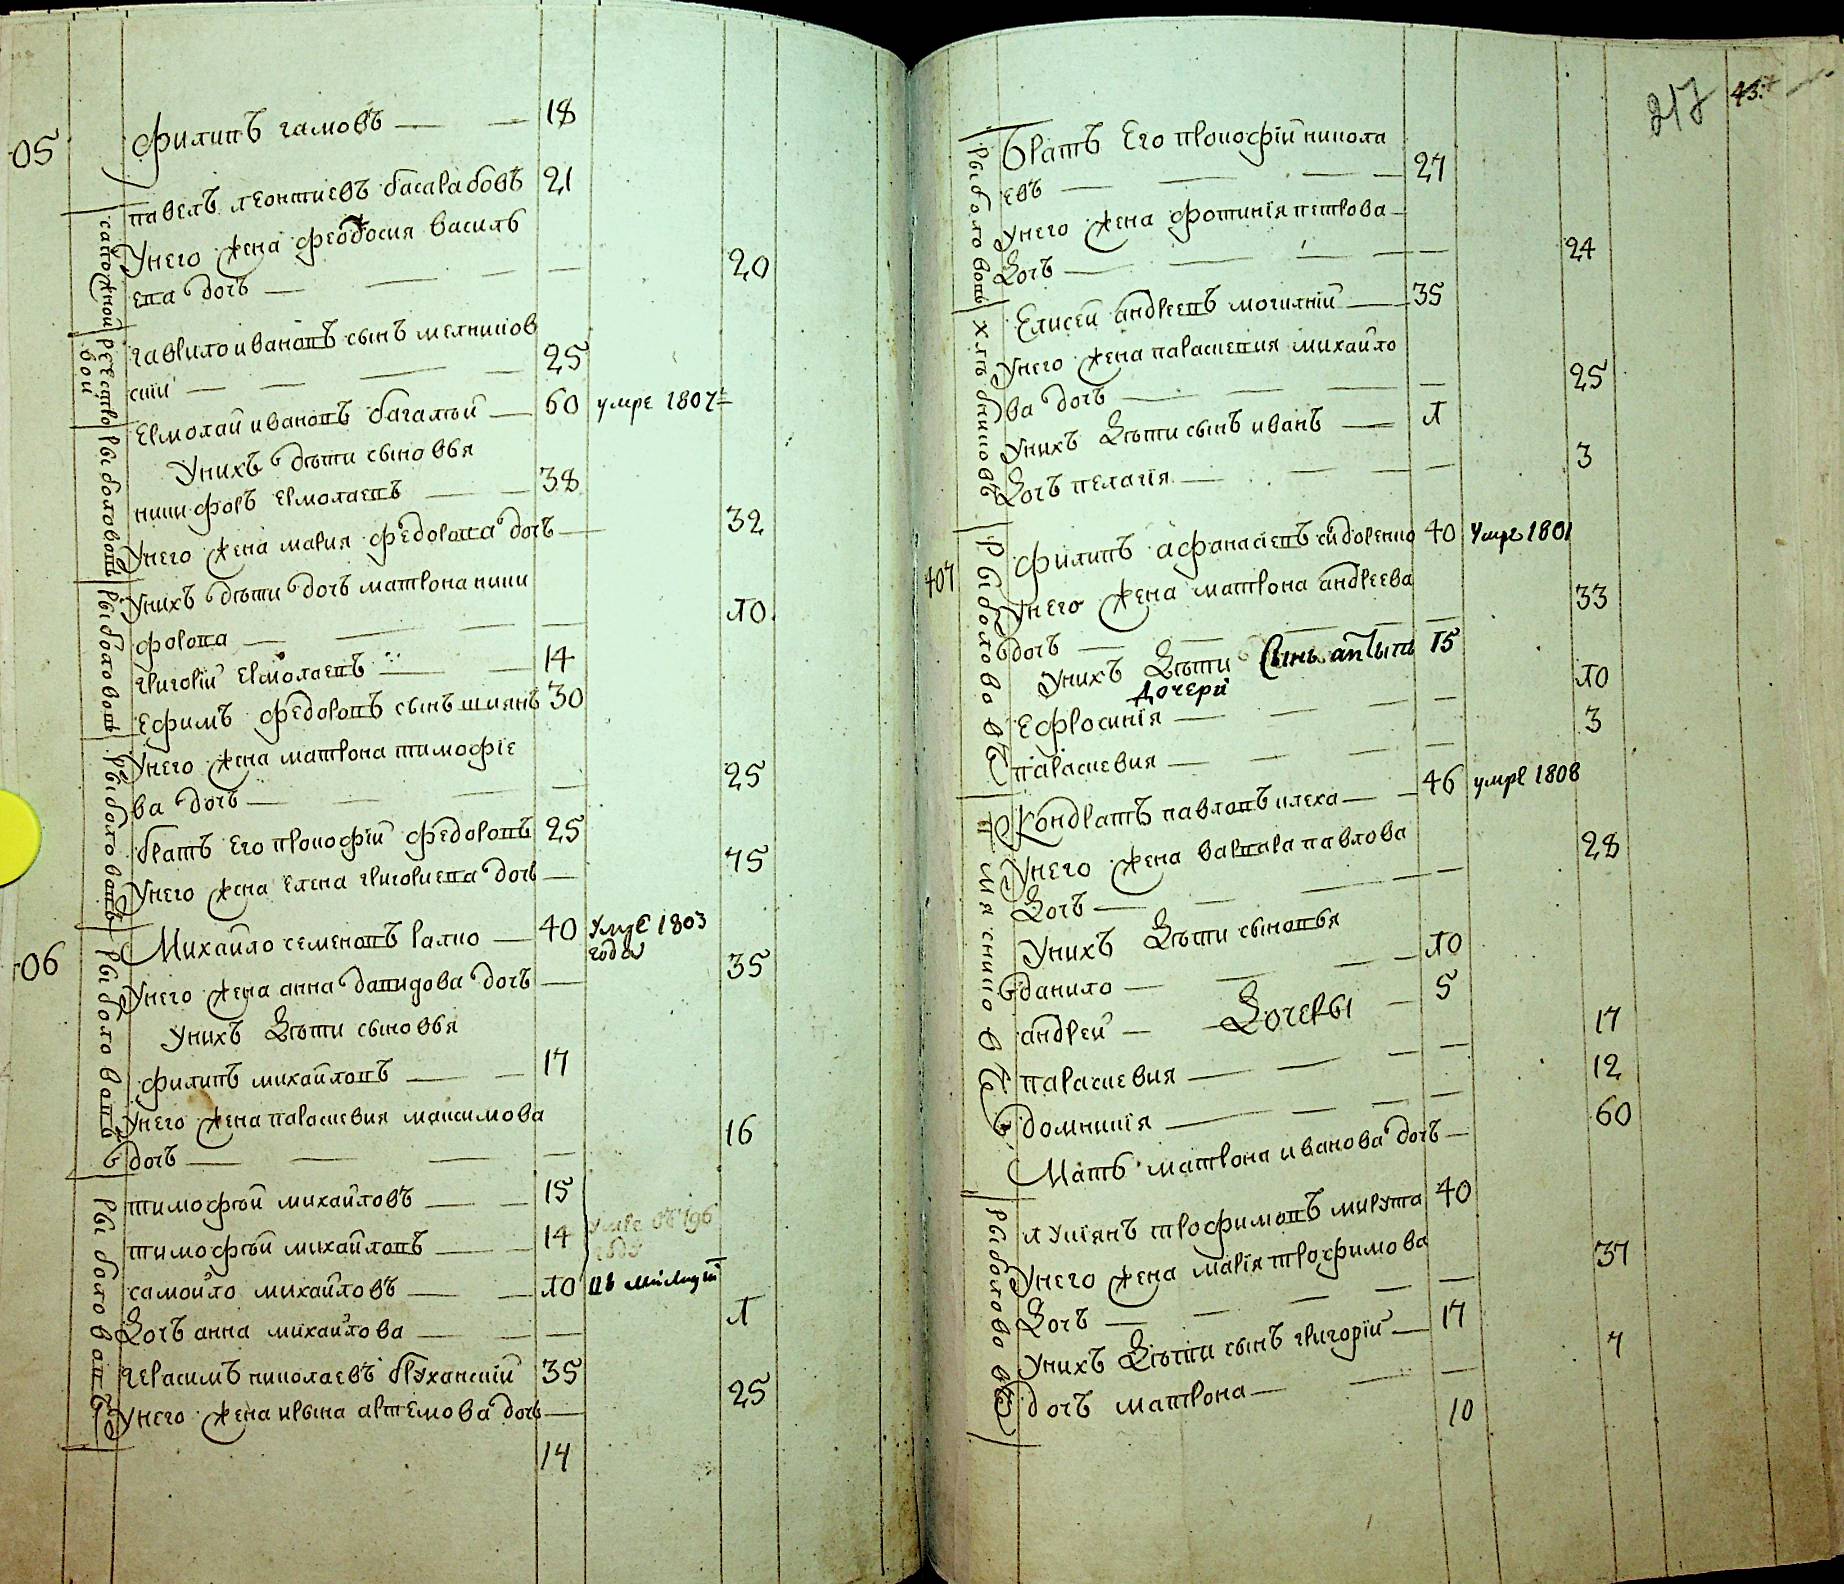 05
филипъ гамовъ 18
павелъ леонтиевъ басарабовъ 21
унего жена феодосия василь
ева дочь 20
гаврило ивановъ сынъ мелников
ский 25
ермолай ивановъ багатый 60 умре 1807
унихъ дѣти сыновья
никифоръ ермолаевъ 38
унего жена мария федорова дочь 32
унихъ дѣти дочь матрона ники
форова 10
григорий ермолаевъ 14
ефимъ федоровъ сынъ шиянъ 30
унего жена матрона тимофіе
ва дочь 25
братъ его прокофій федоровъ 25
унего жена елена григориева дочь 45
06
Михайло семеновъ ралко 40 умре 1803
году
унего жена анна давидова дочь 35
унихъ дѣти сыновья
филипъ михайловъ 17
унего жена параскевия максимова
дочь 16
тимофѣй михайловъ 15
тимофѣй михайловъ 14 умре въ 796
году
самойло михайловъ 10
дочь анна михайлова 1
герасимъ николаевъ бруханский 35
унего жена ирына артемова дочь 25
14
сапожной
реестро
вой
рыболововъ
рыболововъ
рыболововъ
рыболововъ
рыболововъ
217
437
братъ его прокофій никола
евъ 27
унего жена фотинія петрова
дочь 24
Елисей андреевъ могилній 35
унего жена параскевия михайло
ва дочь 25
унихъ дѣти сынъ иванъ 1
дочь пелагія 3
407
филипъ афанасіевъ сидоренко 40 умре 1801
унего жена матрона андреева
дочь 33
унихъ дѣти сынъ антыпъ 15
дочери
ефросинія 10
параскевия 3
Кондратъ павловъ клеха 46 умре 1808
унего жена варвара павлова
дочь 28
унихъ дѣти сыновья
данило 10
андрей 5
дочеры
параскевия 17
домникія 12
Мать матрона иванова дочь 60
лукіянъ трофимовъ мирута 40
унего жена марія трофимова
дочь 37
унихъ дѣти сынъ григорій 17
дочь матрона 7
10
рыболововъ
хлѣбниковъ
рыболововъ
мяснико въ
рыболововъ